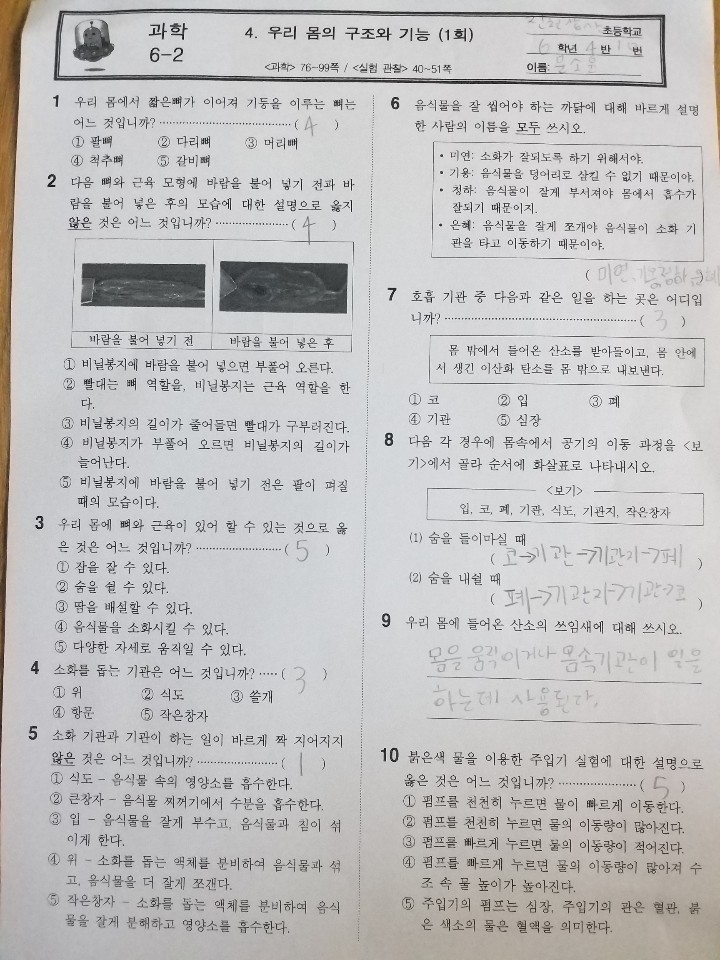 과학
6-2
4. 우리 몸의 구조와 기능 (1회)
<과학> 76~99쪽 / <실험 관찰> 40~51쪽
초등학교
6 학년 4 반 번
이름:
1 우리 몸에서 짧은뼈가 이어져 기둥을 이루는 뼈는
어느 것입니까? ( 4 )
① 팔뼈 ② 다리뼈 ③ 머리뼈
④ 척추뼈 ⑤ 갈비뼈
2 다음 뼈와 근육 모형에 바람을 불어 넣기 전과 바
람을 불어 넣은 후의 모습에 대한 설명으로 옳지
않은 것은 어느 것입니까? ( 4 )
바람을 불어 넣기 전 바람을 불어 넣은 후
① 비닐봉지에 바람을 불어 넣으면 부풀어 오른다.
② 빨대는 뼈 역할을, 비닐봉지는 근육 역할을 한
다.
③ 비닐봉지의 길이가 줄어들면 빨대가 구부러진다.
④ 비닐봉지가 부풀어 오르면 비닐봉지의 길이가
늘어난다.
⑤ 비닐봉지에 바람을 불어 넣기 전은 팔이 펴질
때의 모습이다.
3 우리 몸에 뼈와 근육이 있어 할 수 있는 것으로 옳
은 것은 어느 것입니까? ( 5 )
① 잠을 잘 수 있다.
② 숨을 쉴 수 있다.
③ 땀을 배설할 수 있다.
④ 음식물을 소화시킬 수 있다.
⑤ 다양한 자세로 움직일 수 있다.
4 소화를 돕는 기관은 어느 것입니까? ( 3 )
① 위 ② 식도 ③ 쓸개
④ 항문 ⑤ 작은창자
5 소화 기관과 기관이 하는 일이 바르게 짝 지어지지
않은 것은 어느 것입니까? ( 1 )
① 식도 – 음식물 속의 영양소를 흡수한다.
② 큰창자 – 음식물 찌꺼기에서 수분을 흡수한다.
③ 입 – 음식물을 잘게 부수고, 음식물과 침이 섞
이게 한다.
④ 위 – 소화를 돕는 액체를 분비하여 음식물과 섞
고, 음식물을 더 잘게 쪼갠다.
⑤ 작은창자 – 소화를 돕는 액체를 분비하여 음식
물을 잘게 분해하고 영양소를 흡수한다.
6 음식물을 잘 씹어야 하는 까닭에 대해 바르게 설명
한 사람의 이름을 모두 쓰시오.
• 미연: 소화가 잘되도록 하기 위해서야.
• 기용: 음식물을 덩어리로 삼킬 수 없기 때문이야.
• 청하: 음식물이 잘게 부서져야 몸에서 흡수가
잘되기 때문이지.
• 은혜: 음식물을 잘게 쪼개야 음식물이 소화 기
관을 타고 이동하기 때문이야.
( 미연, 기용, 청하, 은혜 )
7 호흡 기관 중 다음과 같은 일을 하는 곳은 어디입
니까? ( 3 )
몸 밖에서 들어온 산소를 받아들이고, 몸 안에
서 생긴 이산화 탄소를 몸 밖으로 내보낸다.
① 코 ② 입 ③ 폐
④ 기관 ⑤ 심장
8 다음 각 경우에 몸속에서 공기의 이동 과정을 <보
기>에서 골라 순서에 화살표로 나타내시오.
<보기>
입, 코, 폐, 기관, 식도, 기관지, 작은창자
(1) 숨을 들이마실 때
( 코→기관→기관지→폐 )
(2) 숨을 내쉴 때
( 폐→기관지→기관→코 )
9 우리 몸에 들어온 산소의 쓰임새에 대해 쓰시오.
몸을 움직이거나 몸속기관이 일을
하는데 사용된다.
10 붉은색 물을 이용한 주입기 실험에 대한 설명으로
옳은 것은 어느 것입니까? ( 5 )
① 펌프를 천천히 누르면 물이 빠르게 이동한다.
② 펌프를 천천히 누르면 물의 이동량이 많아진다.
③ 펌프를 빠르게 누르면 물의 이동량이 적어진다.
④ 펌프를 빠르게 누르면 물의 이동량이 많아져 수
조 속 물 높이가 높아진다.
⑤ 주입기의 펌프는 심장, 주입기의 관은 혈관, 붉
은 색소의 물은 혈액을 의미한다.